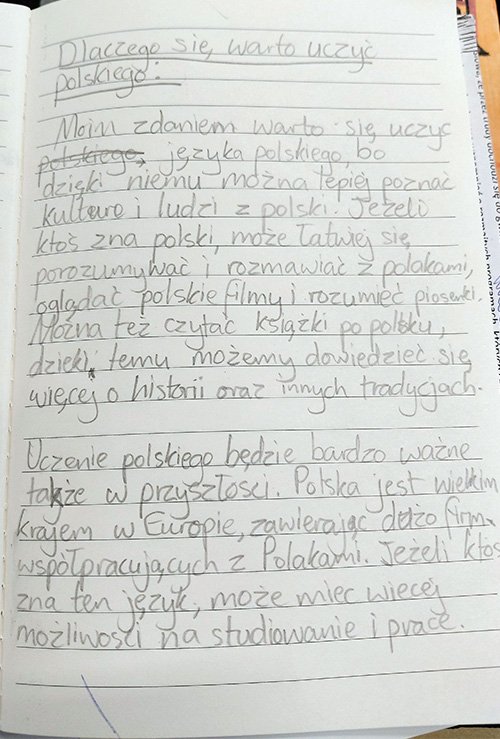 Dlaczego się warto uczyć
polskiego:
Moim zdaniem warto się uczyc
polskiego, języka polskiego, bo
dzięki niemu można lepiej poznać
kulture i ludzi z polski. Jeżeli
ktoś zna polski, może łatwiej się
porozumywać i rozmawiać z polakami,
oglądać polskie filmy i rozumieć piosenki.
Można też czytać książki po polsku,
dzieki temu możemy dowiedzieć się
więcej o historii oraz innych tradycjach.
Uczenie polskiego będzie bardzo ważne
także w przyszłosci. Polska jest wielkim
krajem w Europie, zawierając dużo firm
współpracujących z Polakami. Jeżeli ktoś
zna ten język, może miec wiecej
możliwosci na studiowanie i prace.